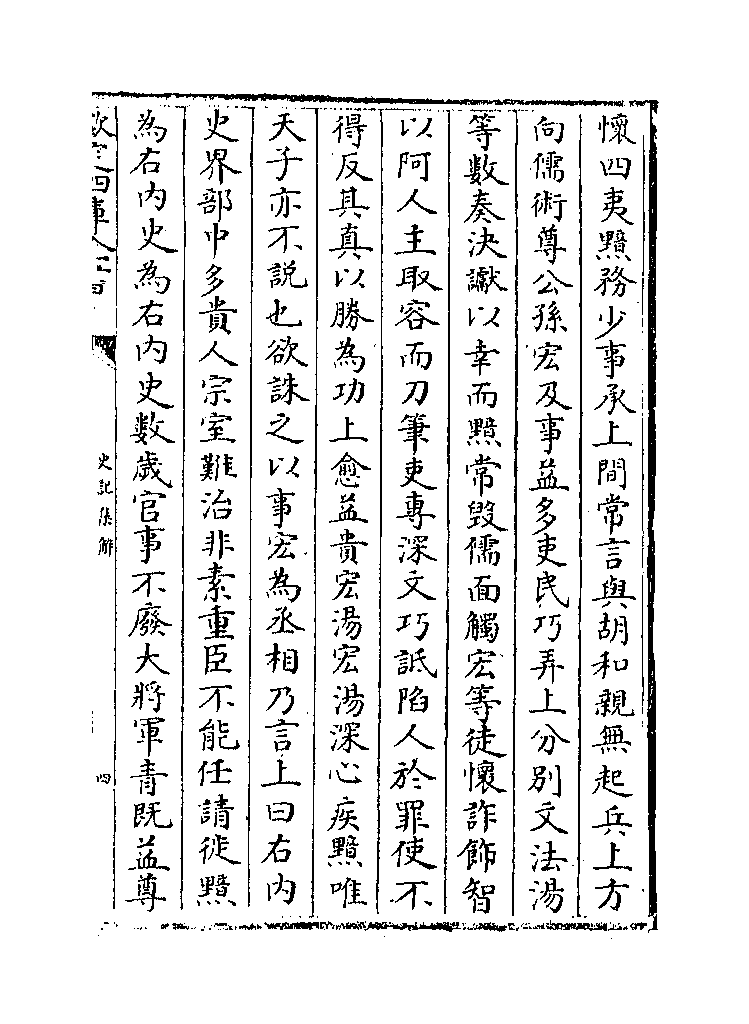 懷四夷黯務少事承上間常言與胡和親無起兵上方
向儒術尊公孫宏及事益多吏民巧弄上分別文法湯
等數奏決讞以幸而黯常毀儒面觸宏等徒懷詐飾智
以阿人主取容而刀筆吏專深文巧詆陷人於罪使不
得反其真以勝為功上愈益貴宏湯宏湯深心疾黯唯
天子亦不説也欲誅之以事宏為丞相乃言上曰右内
史界部中多貴人宗室難治非素重臣不能任請徙黯
為右内史為右内史數歲官事不廢大將軍青既益尊
欽定四庫全書
史記集解
四